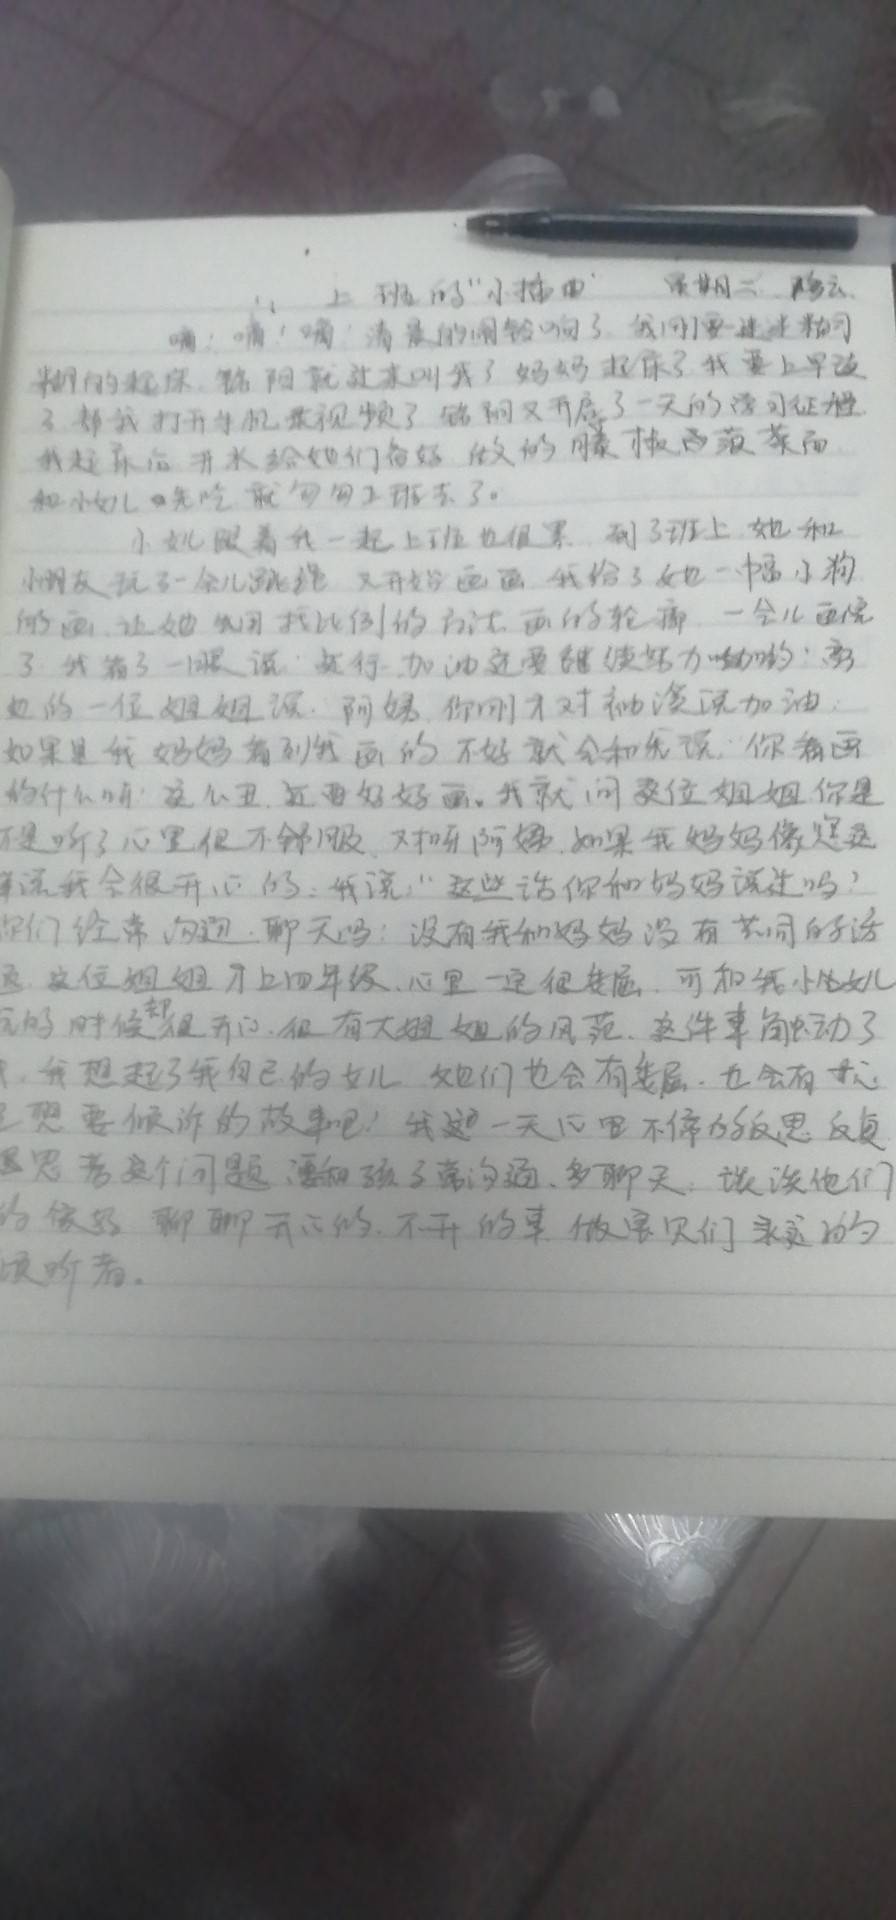 上班的“小插曲” 星期二 多云
嘀！嘀！嘀！清晨的闹铃响了 我刚要迷迷糊
糊的起床 阳就过来叫我了 妈妈起床了我要上早读
了 帮我打开手机录视频了 又开启了一天的学习征程
我起床后 开水给她们备好 做的 西菠菜面
和小女儿先吃 就匆匆上班去了。
小女儿跟着我一起上班也很累 到了班上 她和
小朋友玩了一会儿跳绳 又开始画画 我给了她一幅小狗
的画 让她用找比例的方法 画的轮廓 一会儿画完
了 我看了一眼说：还行 加油还要继续努力呦 旁
边的一位姐姐说：阿姨 你刚才对 说加油
如果是我妈妈看到我画的不好就会和我说：你看画
的什么呀！这么丑 还要好好画。我就问这位姐姐你是
不是听了心里很不舒服 对呀阿姨 如果我妈妈像您这
样说我会很开心的：我说：“这些话你和妈妈说过吗？
你们经常沟通 聊天吗？没有我和妈妈没有共同的话
题 这位姐姐才上四年级 心里一定很委屈 可和我小女儿
玩的时候却很开心 很有大姐姐的风范 这件事触动了
我 我想起了我自己的女儿 她们也会有委屈 也会有
想要倾诉的故事吧！我这一天心里不停的反思 反复
思考这个问题 要和孩子常沟通、多聊天 谈谈他们
的 聊聊开心的 不开的事 做宝贝们永远的
倾听者。